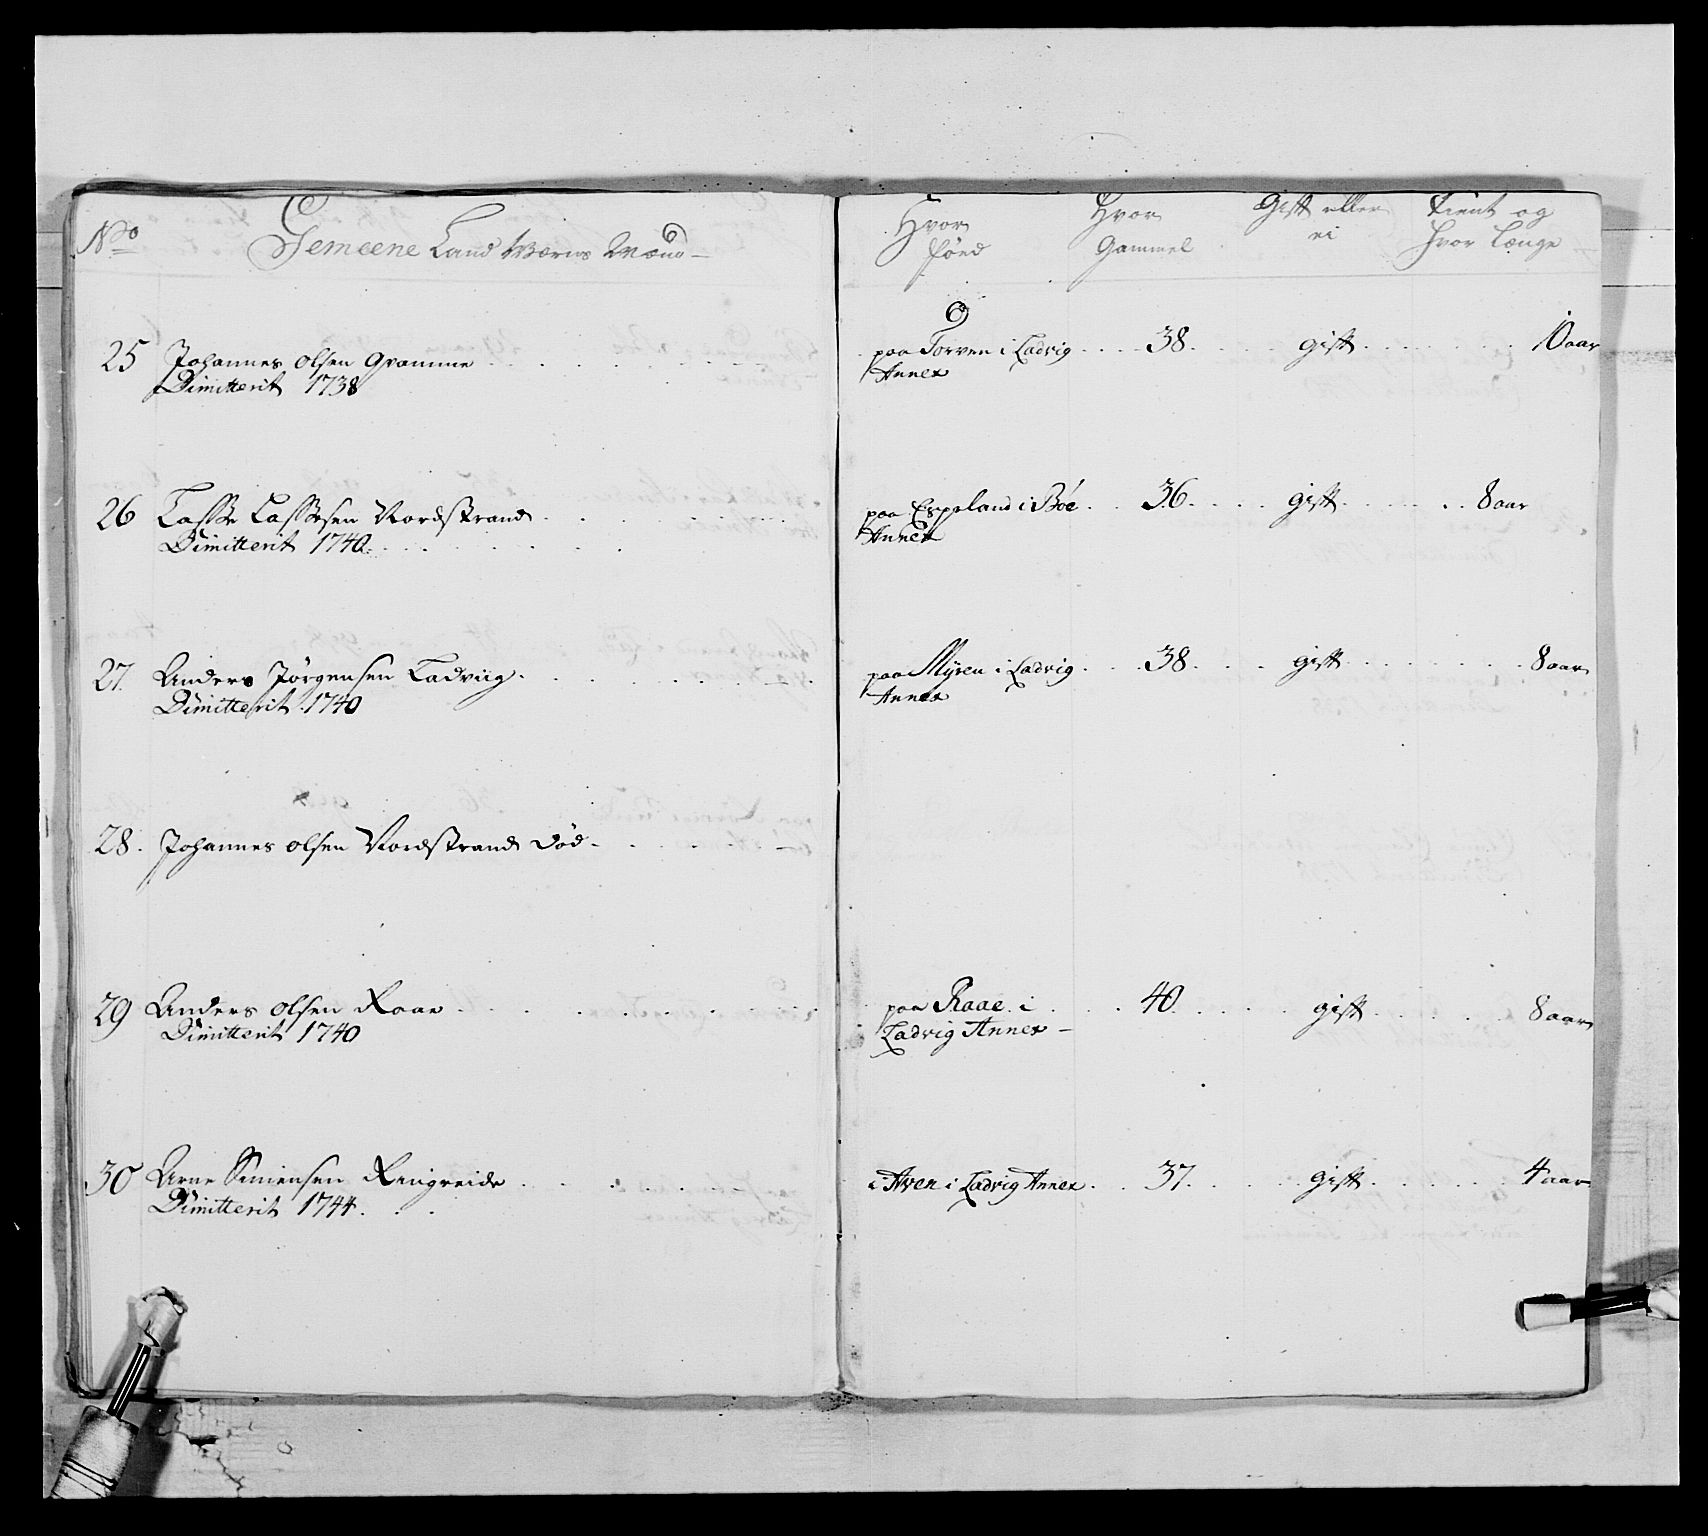 No Gemeene Land Værns Mænd
Hvor
föed
Hvor
Gammel
Gift eller
ei
tient og
hvor længe
25 Johannes olsen Gramme paa Torven i Ladvig 38 gift 10 aar
Dimitterit 1738 Annex
26 Lasse Lassesen Nordstrand paa Espeland i Böe 36 gift 8 aar
Dimitterit 1740 Annex
27 Anders Jørgensen Ladviig paa Myren i Ladvig 38 gift 8 aar
Dimitterit 1740 Annex
28 Johannes olsen Nordstrand død
29 Anders olsen Raae paa Raae i 40 gift 8 aar
Dimitterit 1740 Ladvig Annex
30 Arne Simensen Ringreide i Aven i Ladvig Annex 37 gift 4 aar
Dimitterit 1744